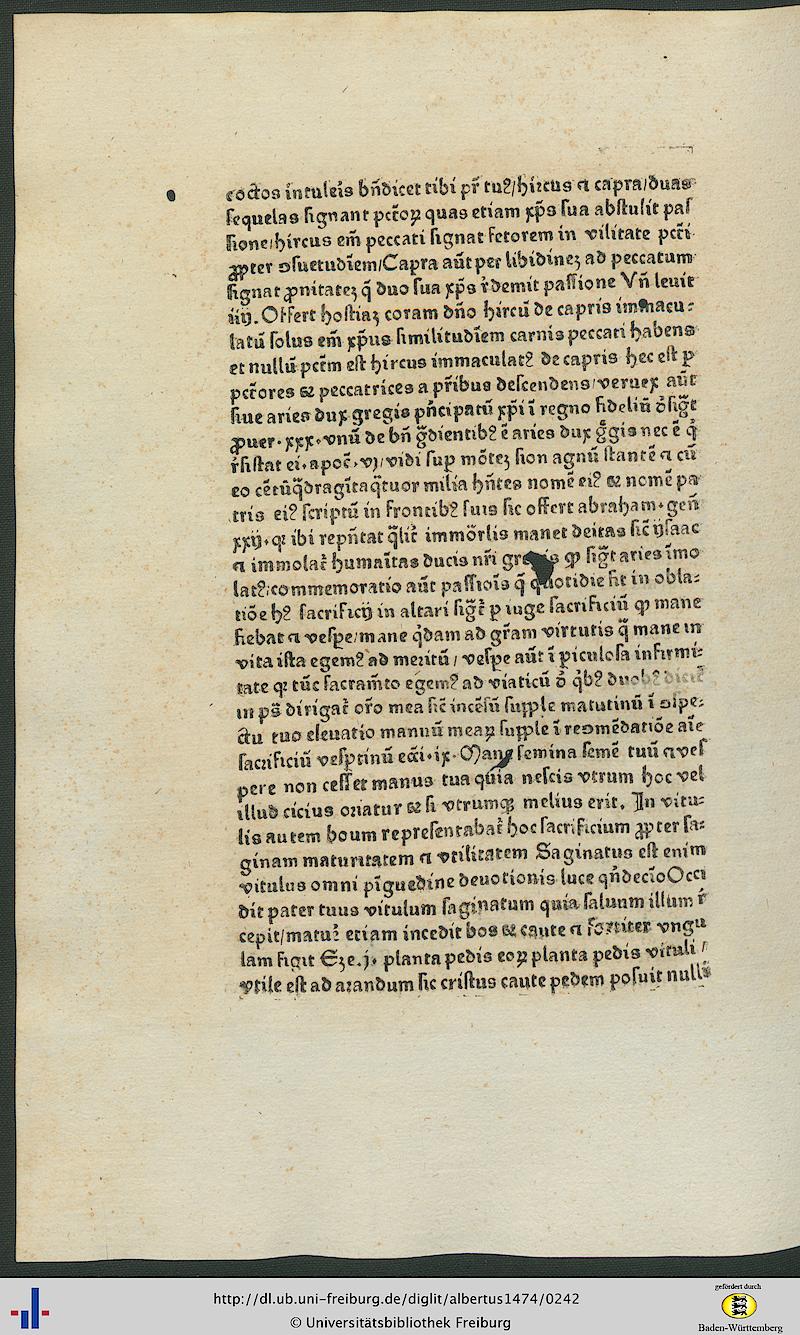 coctos intuleis bn̄dicet tibi pr̄ tuꝰ/hircus ⁊ capra/duas
sequelas signant pctōꝝ quas etiam xp̄s sua abstulit paſ
sione/hircus em̄ peccati signat fetorem in vilitate pctī
ꝓpter ↄsuetudīem/Capra aūt per libidineꝫ ad peccatum
signat ꝓnitateꝫ q̄ duo sua xp̄s rͥdemit passione Vn̄ leuit
iiij. Offert hostiaꝫ coram dn̄o hircū de capris immacu⸗
latū solus em̄ xp̄us similitudīem carnis peccati habens
et nullū pctm̄ est hircus immaculatꝰ de capris hec est ꝑ
pctōres ⁊ peccatrices a pr̄ibus descendens/veruex aūt
siue aries dux gregis pn̄cipatū xp̄i ī regno fideliū
ꝓuer. xxx. vnū de bn̄ gͣdientibꝰ ē aries dux gͤgis nec ē qͥ
rͥsistat ei. apoc̄. vj/vidi suꝑ mōteꝫ sion agnū stantē ⁊ cū
eo cētūqͣdragītaqͣtuor milia hn̄tes nomē eiꝰ ⁊ nomē pa
tris eiꝰ scriptū in frontibꝰ suis sic offert abraham. gen̄
xxij. qꝛ ibi repn̄tat qͣlit̄ immōrlis manet deitas sic̄ ysaac
⁊ immolat̄ humaītas ducis nr̄i ꝙ aries īmo
latꝰ/commemoratio aūt passiōis q̄ quotidie fit in obla⸗
tiōe hꝰ sacrificij in altari ꝑ iuge sacrificiū ꝙ mane
fiebat ⁊ vespe/mane qͥdam ad gr̄am virtutis q̄ mane in
vita ista egemꝰ ad meritū/ vespe aūt ī piculosa infirmi⸗
tate qꝛ tūc sacram̄to egemꝰ ad viaticū
in pͣs dirigat̄ or̄o mea sic̄ incēsū suꝑple matutinū ī ↄspe⸗
ctu tuo eleuatio manuū meaꝝ suꝑple ī recomēdatiōe aīe
sacrificiū vesꝑtinū ecc̄i. ix. Mane semina semē tuū ⁊ veſ
pere non cesset manus tua quia nescis vtrum hoc vel
illud cicius oriatur ⁊ si vtrumqꝫ melius erit. In vitu⸗
lis autem boum representabat̄ hoc sacrificium ꝓpter sa⸗
ginam maturitatem ⁊ vtilitatem Saginatus est enim
vitulus omni pīguedine deuotionis luce qn̄decīo Occi
dit pater tuus vitulum saginatum quia saluum illum r̄
cepit/maturͤ etiam incedit bos ⁊ caute ⁊ fortiter vngu
lam figit Eze. j. planta pedis eoꝝ planta pedis vituli/
vtile est ad arandum sic cristus caute pedem posuit nulli
http://dl.ub.uni-freiburg.de/diglit/albertus1474/0242
© Universitätsbibliothek Freiburg
gefördert durch
Baden-Württemberg